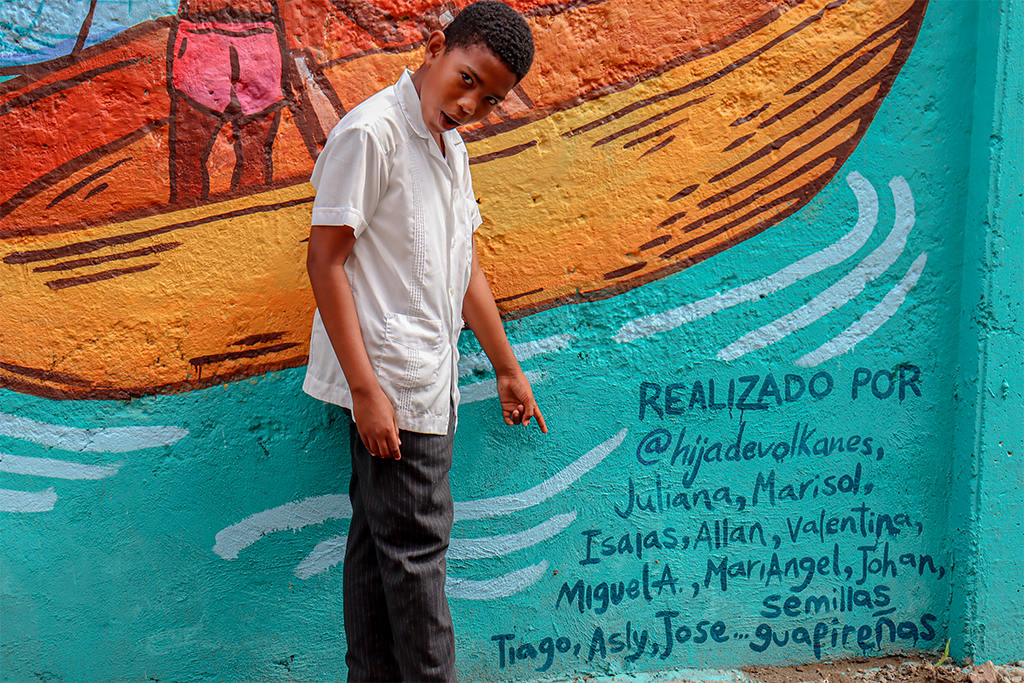 REALIZADO POR
@hijadevolkanes,
Juliana, Marisol,
Isaías, Allan, Valentina,
Miguel A., MariAngel, Johan,
semillas
Tiago, Asly, Jose... guapireñas